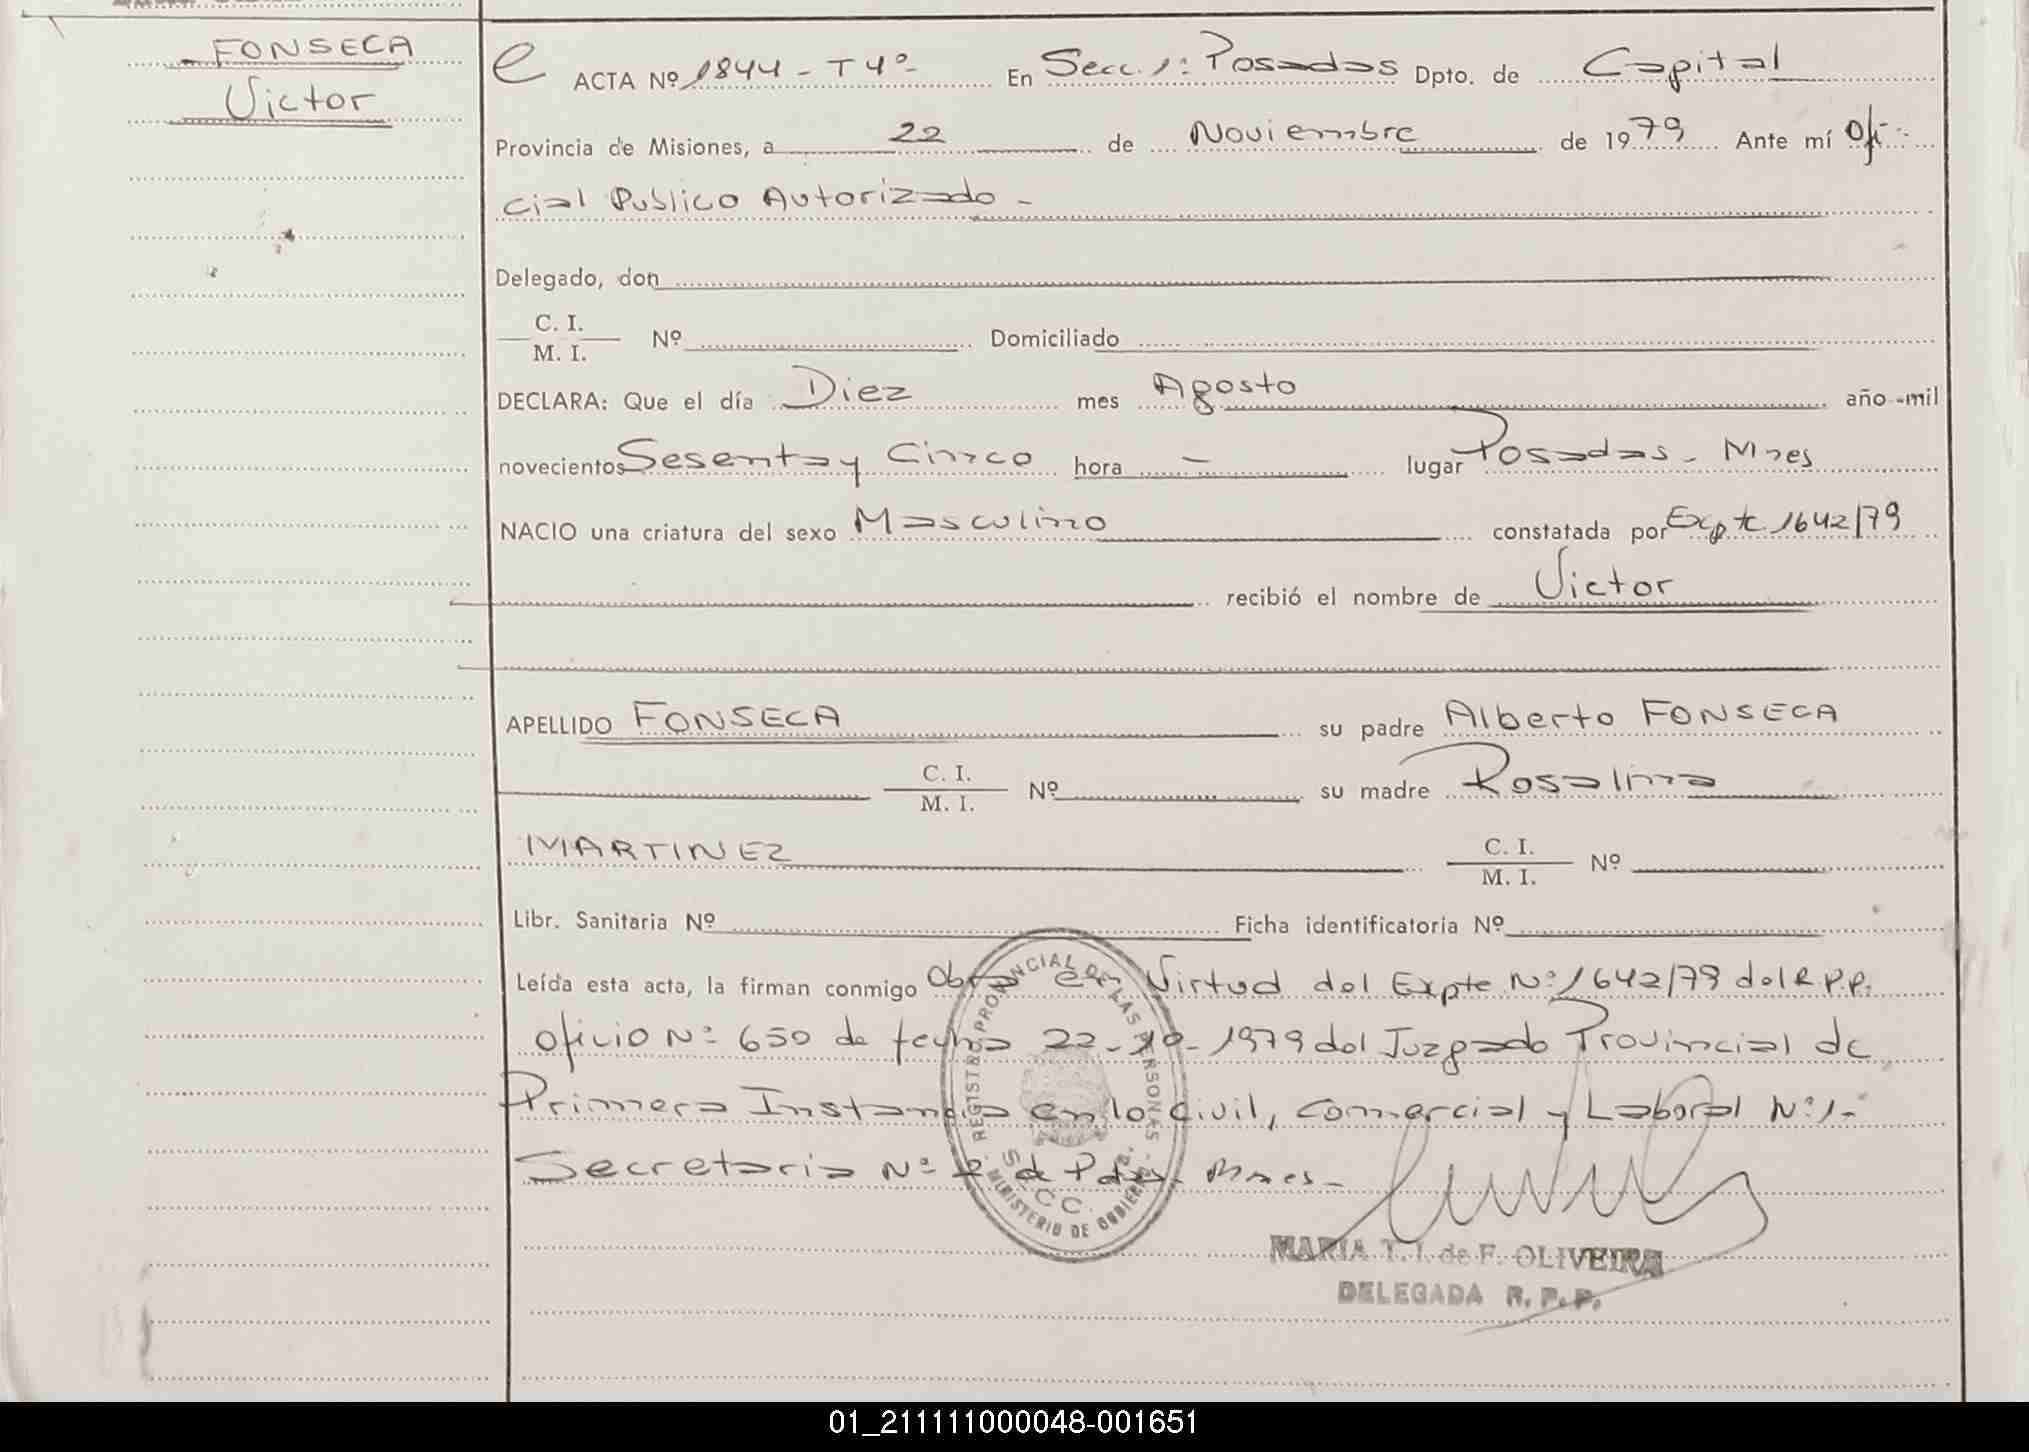 FONSECA
Victor
e ACTA Nº 1844 - T 4º- En Secc. 1: Posadas Dpto. de Capital
Provincia de Misiones, a 22 de Noviembre de 1979 Ante mí Ofi-
cial Publico Autorizado -
Delegado, don
C. I.
M. I. Nº Domiciliado
DECLARA: Que el día Diez mes Agosto año mil
novecientos Sesenta y Cinco hora - lugar Posadas - Mnes
NACIO una criatura del sexo Masculino constatada por Expte. 1642/79
recibió el nombre de Victor
APELLIDO FONSECA su padre Alberto FONSECA
C. I.
M. I. Nº su madre Rosalina
MARTINEZ C. I.
M. I. Nº
Libr. Sanitaria Nº Ficha identificatoria Nº
Leída esta acta, la firman conmigo Obra en Virtud del Expte Nº 1642/79 del R.P.P.
oficio Nº 650 de fecha 22-10-1979 del Juzgado Provincial de
Primera Instancia en lo civil, comercial y Laboral Nº 1-
Secretaria Nº 2 de Pdas. Mnes -
REGISTRO PROVINCIAL DE LAS PERSONAS
SECC.
MINISTERIO DE GOBIERNO
MARIA T. I. de F. OLIVEIRA
DELEGADA R. P. P.
01_211111000048-001651